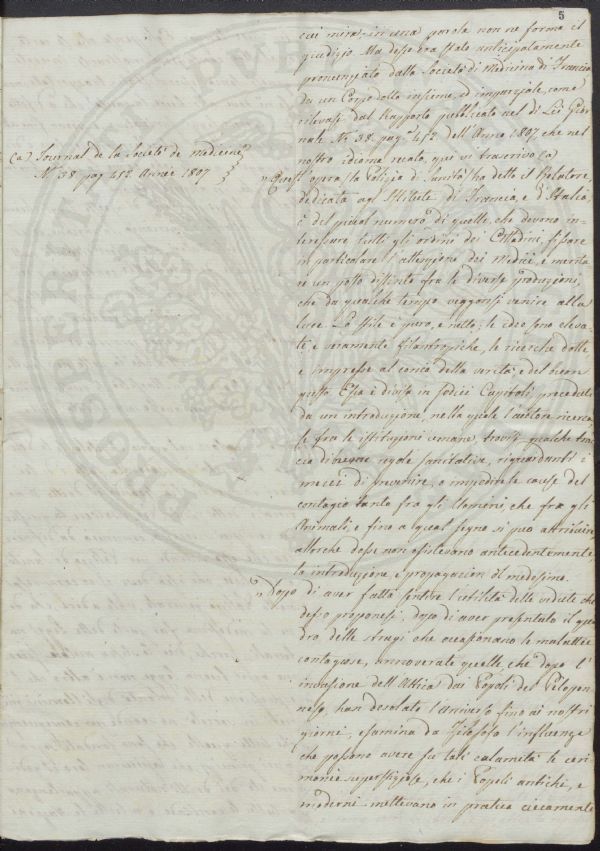 5
cui mira, in una parola non ne forma il
giudizio. Ma desso era stato anticipatamente
pronunziato dalla Società di Medicina di Francia
da un Corpo dotto insieme, ed imparziale, come
rilevasi dal Rapporto pubblicato nel di Lei Gior
nale N. 38. pag. 452. dell'Anno 1807 che nel
nostro idioma recato, qui vi trascrivo (a
(a) Journal de la Societé de Medecine
N. 38 pag 452 Année 1807
" Quest'opera, la Polizia di Sanità, ha detto il Relatore,
dedicata agl'Istituti di Francia, e d'Italia,
è del piccol numero di quelle, che devono in
teressare tutti gli ordini dei Cittadini, fissare
in particolare l'attenzione dei Medici, e merita
re un posto distinto fra le diverse produzioni,
che da qualche tempo veggonsi venire alla
luce. Lo stile è puro, e netto; le idee sono eleva
te, e veramente filantropiche, le ricerche dotte,
e impresse al conio della verità, e del buon
gusto. Essa è divisa in sedici Capitoli, preceduti
da un introduzione, nella quale l'autore ricerca,
se fra le istituzioni umane, trovisi qualche trac
cia di regole sanitative, riguardanti i
mezzi di prevenire, o impedire le cause del
contagio tanto fra gli Uomini, che fra gli
Animali; e fino a qual segno si può attribuire
allorchè desse non esistevano antecedentemente
la introduzione, e propagazion il medesimo.
" Dopo di aver fatta sentire l'utilità delle vedute che
desso proponesi; dopo di aver presentato il qua
dro delle stragi che occasionano le malattie
contagiose, annoverate quelle che dopo l'
invasione dell'Attica dai Popoli del Pelopon
neso, han desolato l'Universo fino ai nostri
giorni, esamina da Filosofo l'influenza
che possono avere su tali calamità le ceri
monie superstiziose, che i Popoli antichi, e
moderni mettevano in pratica ciecamente